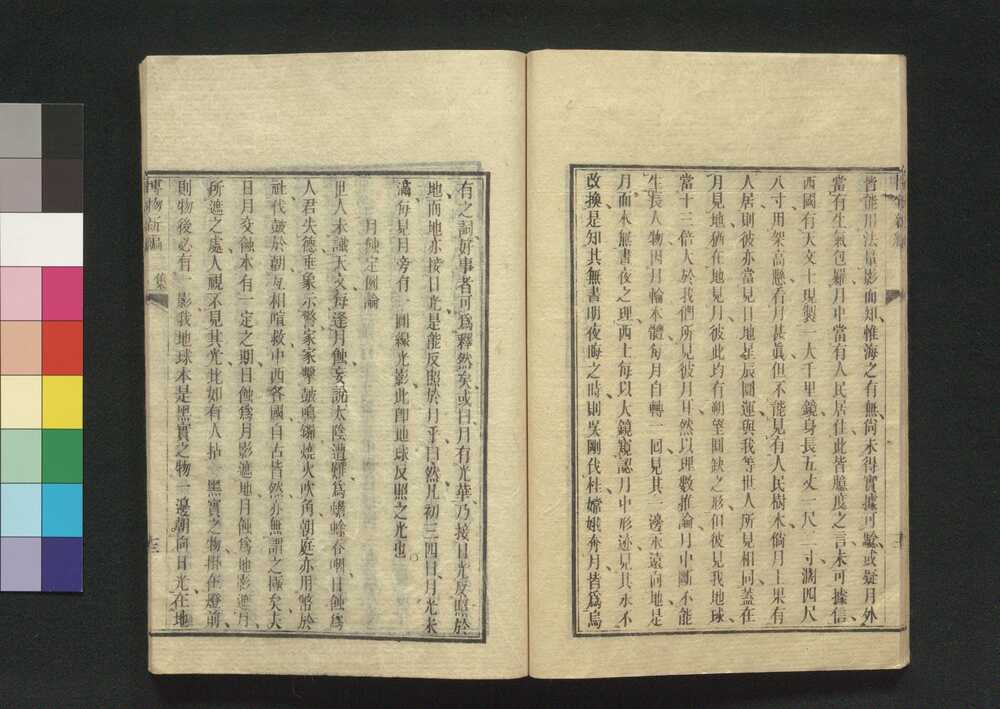 皆能用法量影而知、惟海之有無、尚未得實據可驗、或疑月外
當有生氣包羅、月中當有人民居住、此皆臆度之言、未可據信、
西國有天文士、現製一大千里鏡、身長五丈一尺二寸、濶四尺
八寸、用架高懸、看月甚眞、但不能見有人民樹木、倘月上果有
人居、則彼亦當見日地星辰圜運、與我等世人所見相同、蓋在
月見地、猶在地見月、彼此均有朔望圓缺之形、但彼見我地球、
當十三倍大於我們所見彼月耳、然以理數推論、月中斷不能
生長人物、因月輪本體、每月自轉一回、見其一邊永遠向地、是
月面永無晝夜之理、西士每以大鏡窺認月中形迹、見其永不
改換、是知其無晝明夜晦之時、則吳剛伐桂、嫦娥奔月、皆爲烏
有之詞、好事者可爲釋然矣、或曰、月有光華、乃接日光反照於
地、而地亦接日光、是能反照於月乎、曰然、凡初三四日、月光未
滿、每見月旁有一圓線光影、此卽地球反照之光也。
月蝕定例論
世人未識天文、每逢月蝕、妄說太陰遭難、爲蟾蜍吞啣、日蝕爲
人君失德、垂象示警、家家擊鼓鳴鑼、燒火吹角、朝庭亦用幣於
社、伐鼓於朝、互相喧救、中西各國、自古皆然、亦無謂之極矣、夫
日月交蝕、本有一定之期、日蝕爲月影遮地、月蝕爲地影遮月、
所遮之處、人視不見其光、比如有人拈一黑實之物、掛在燈前、
則物後必有一影、我地球本是黑實之物、一邊朝向日光、在地
博物新編
二集
十三